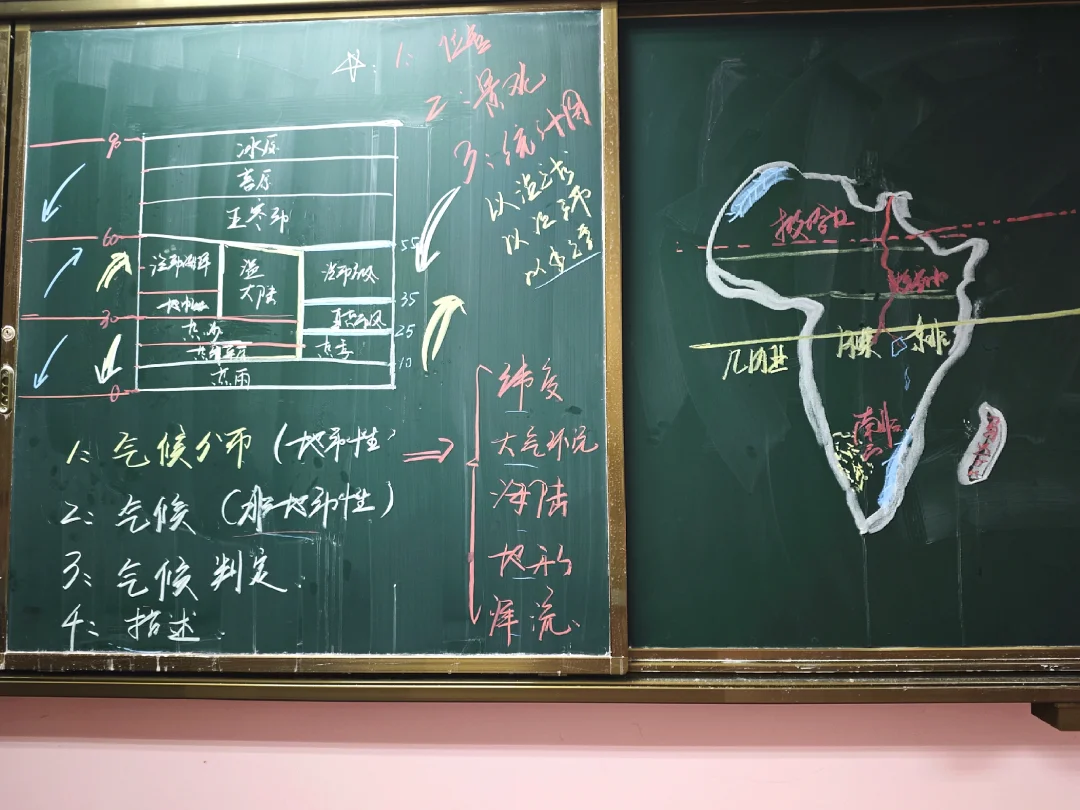 1: 位置
2: 景观
3: 统计图
以温
以水
90
冰原
苔原
亚寒带
60
55
温带海洋
温大陆
温带季风
35
地中海
30
亚热季风
25
热沙
热季
热草原
10
热雨
0
1: 气候分布（地带性
2: 气候（非地带性）
3: 气候判定
4: 描述
纬度
大气环流
海陆
地形
洋流
撒哈拉
几内亚
东非
南非